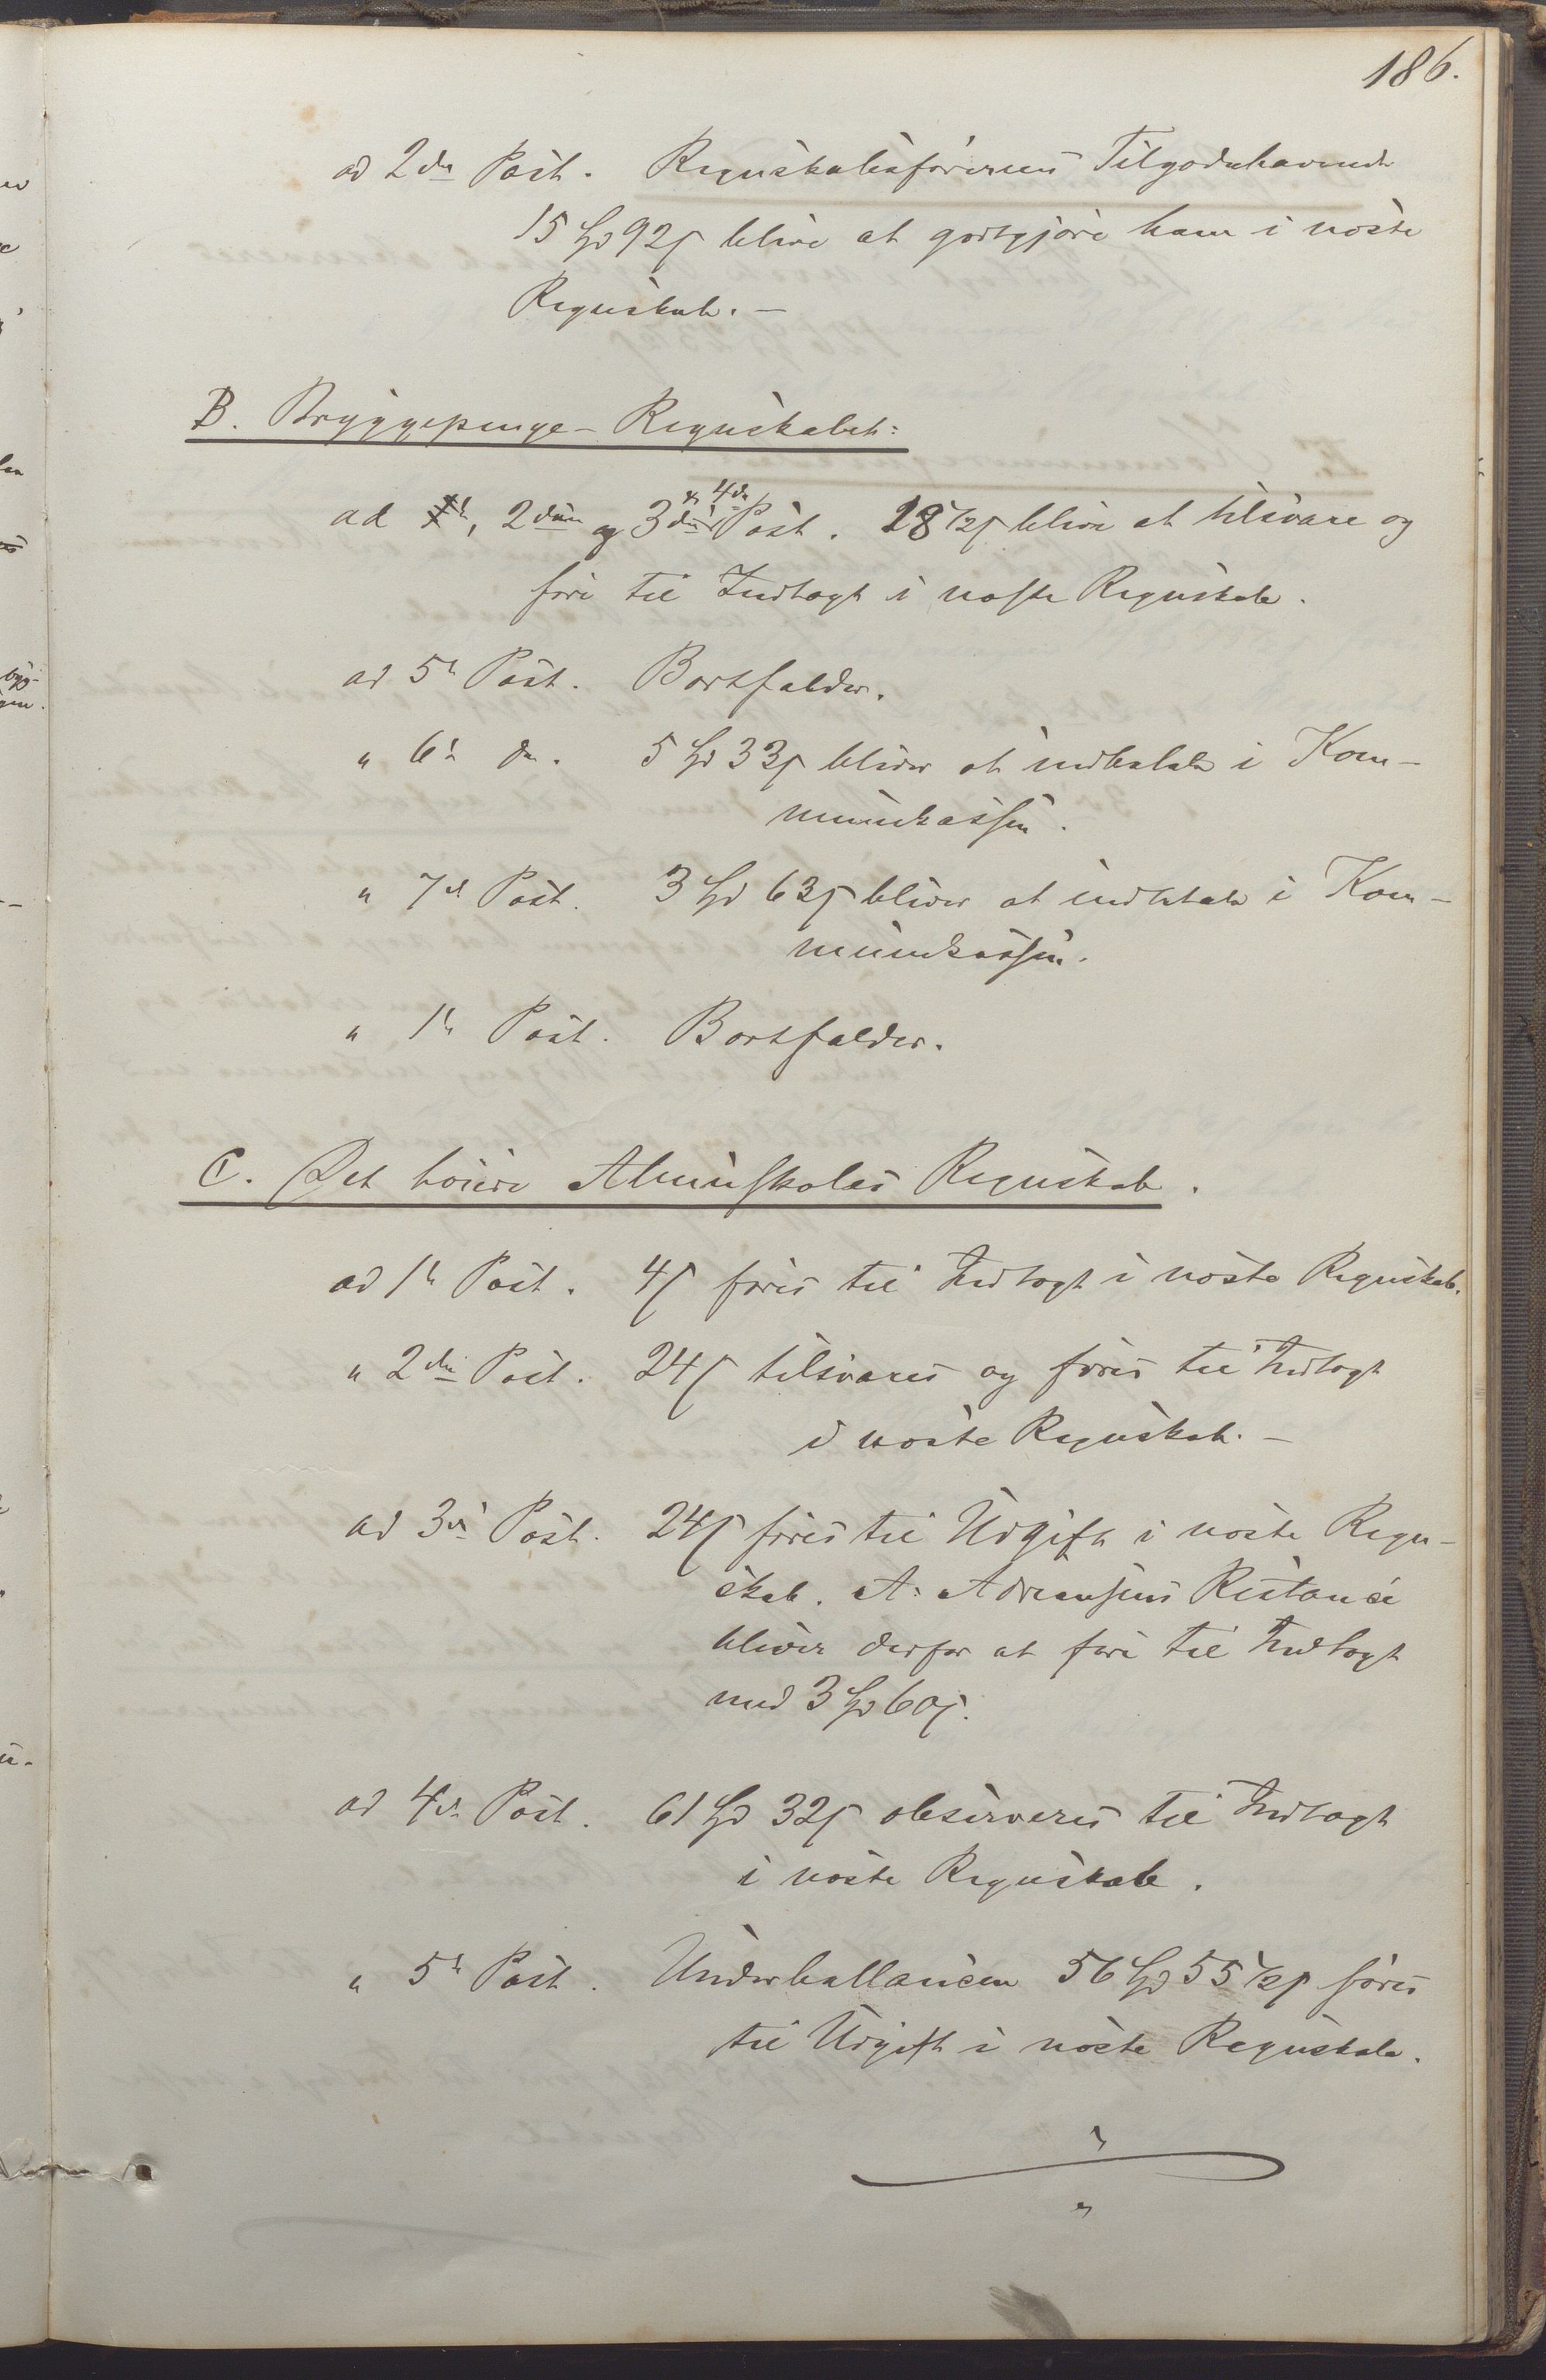 186.
ad 2den Post. Regnskabsførerens Tilgodehavende
15 Spd 92 s blive at godtgjøre ham i næste
Regnskab. —
B. Bryggepenge-Regnskabet:
ad 1ste, 2den og 3die & 4de Post. 28 1/2 s blive at tilsvare og
føre til Indtægt i næste Regnskab.
ad 5te Post. Bortfalder.
" 6te do. 5 Spd 33 s bliver at indbetale i Kom-
munekassen.
" 7de Post. 3 Spd 63 s bliver at indbetale i Kom-
munekassen.
" 1ste Post. Bortfalder.
C. Det høiere Almuskoles Regnskab.
ad 1ste Post. 4 s føres til Indtægt i næste Regnskab.
" 2den Post. 24 s tilsvares og føres til Indtægt
i næste Regnskab. —
ad 3die Post. 24 s føres til Udgift i næste Regn-
skab. A. Adriansens Restance
bliver derfor at føre til Indtægt
med 3 Spd 60 s.
ad 4de Post. 61 Spd 32 s observeres til Indtægt
i næste Regnskab.
" 5te Post. Underballancen 56 Spd 55 1/2 s føres
til Udgift i næste Regnskab.